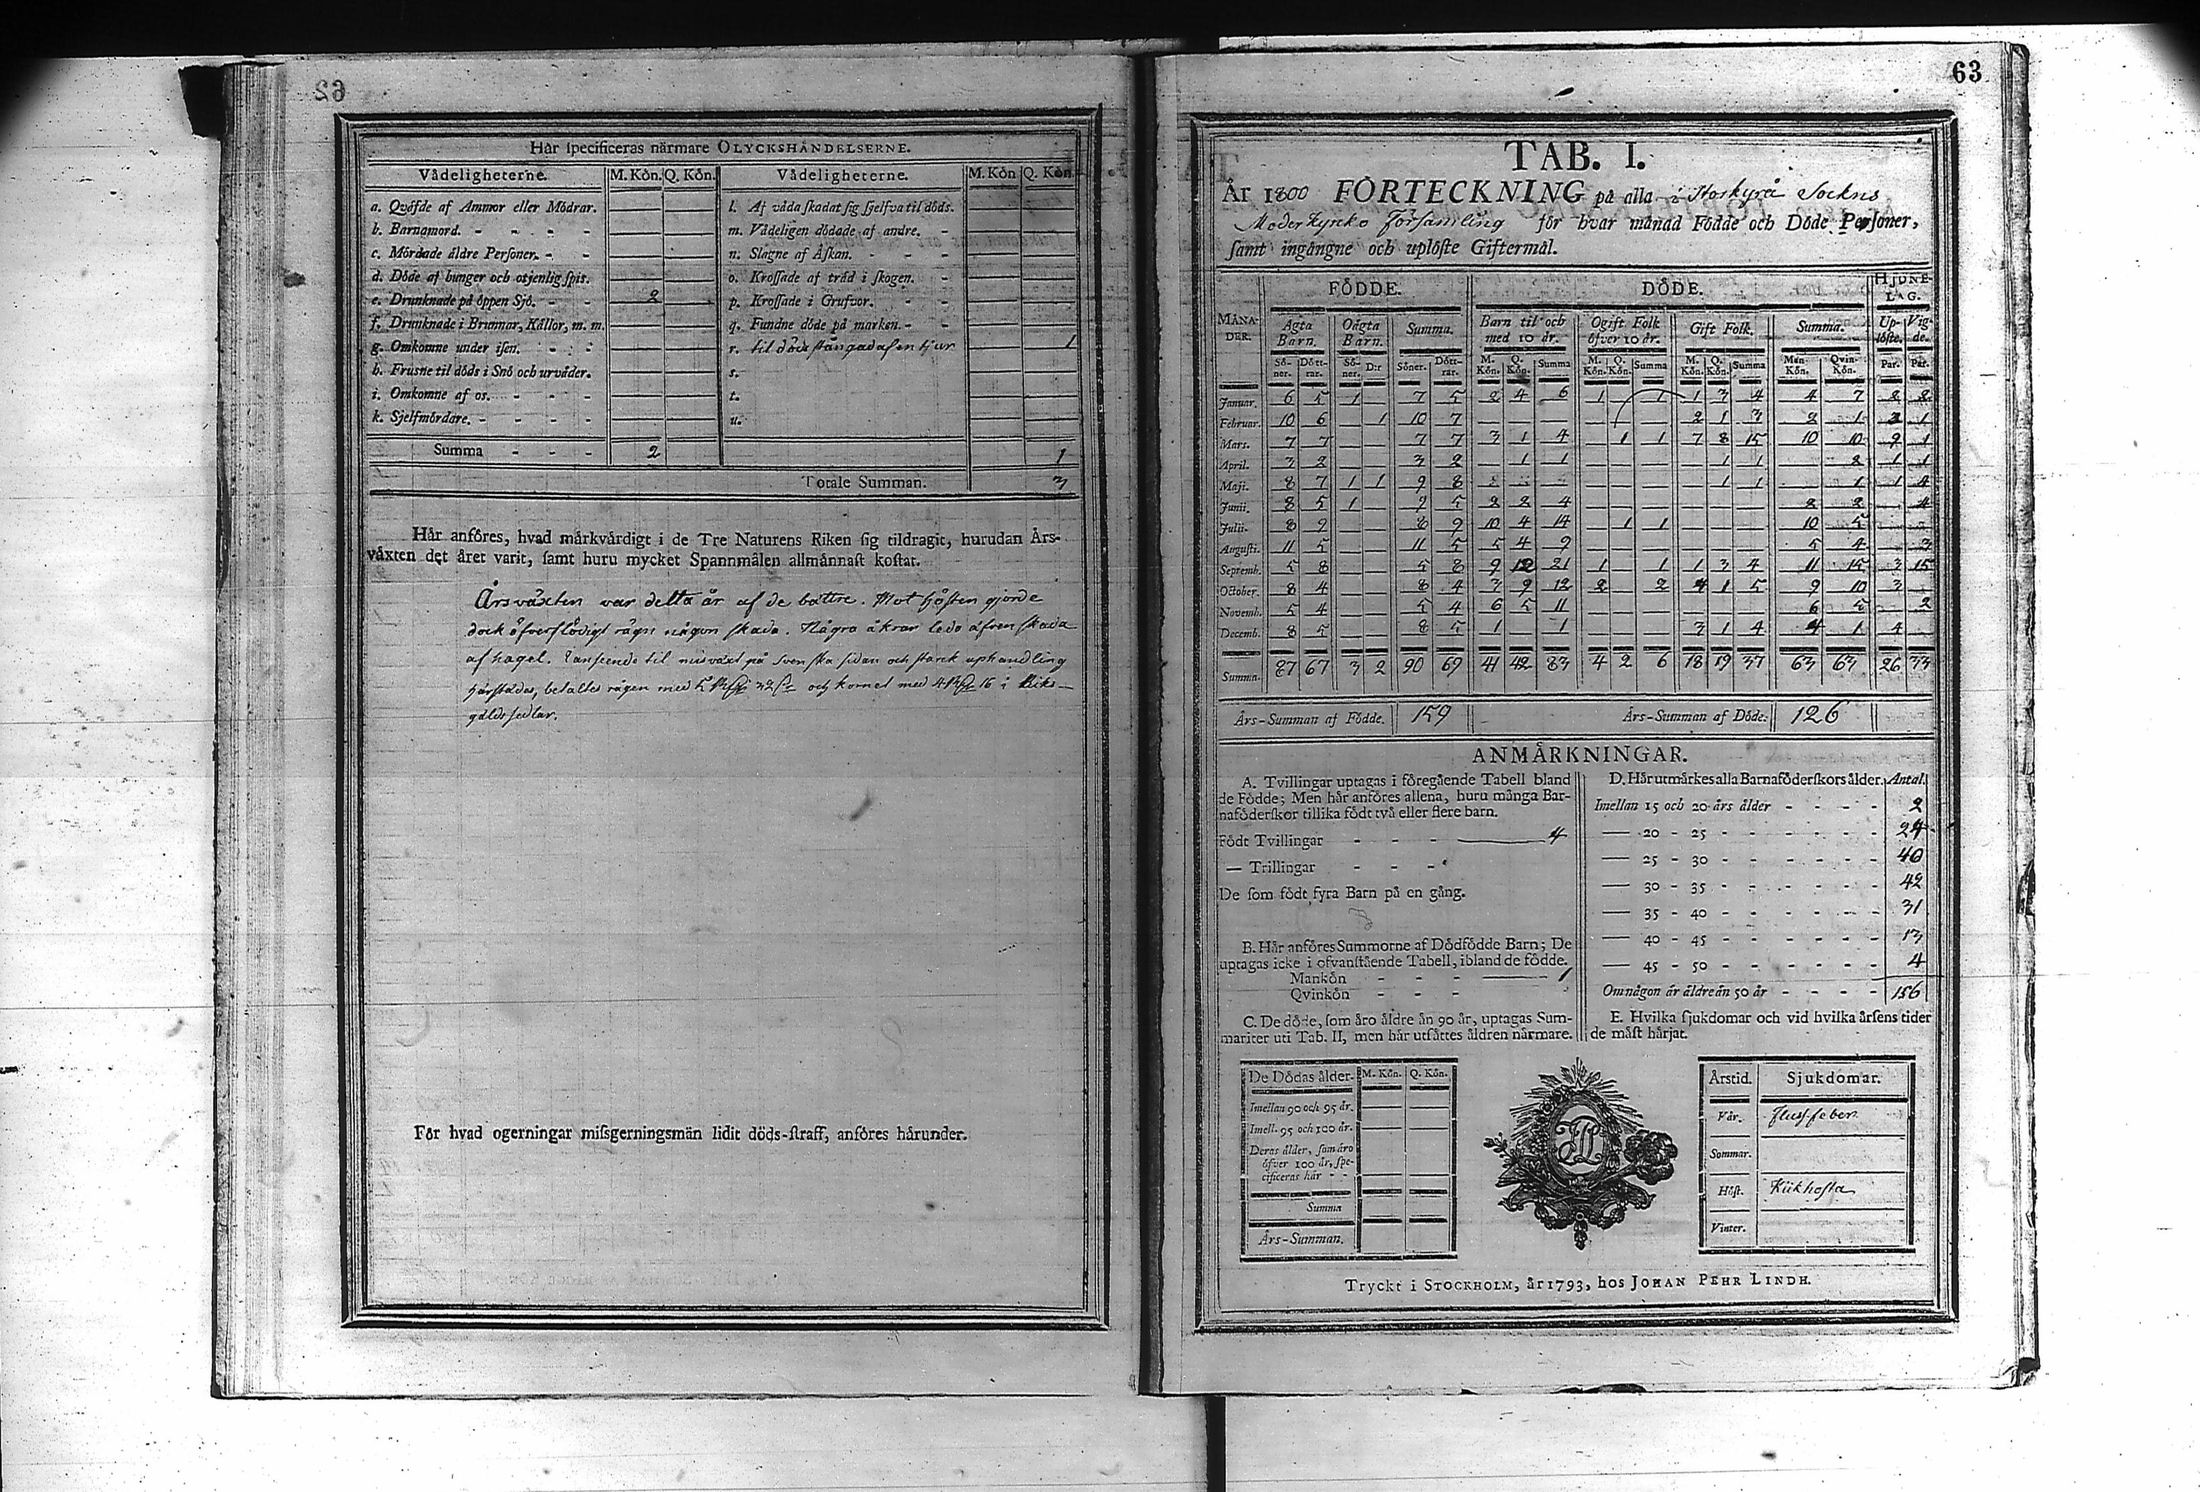 62
Hår specificeras närmare OLYCKSHÅNDELSERNE.
Vådeligheterne. M. Kön. Q. Kön. Vådeligheterne. M. Kön Q. Kön.
a. Qväfde af Ammor eller Mödrar. — — l. Af våda skadat sig sjelfva til döds. — —
b. Barnamord. — — m. Vådeligen dödade af andre. — —
c. Mördade äldre Personer. — — n. Slagne af Åskan. — —
d. Döde af hunger och otjenlig spis. — — o. Krossade af träd i skogen. — —
e. Drunknade på öppen Sjö. 2 p. Krossade i Grufvor. — —
f. Drunknade i Brunnar, Källor, m. m. — — q. Fundne döde på marken. — —
g. Omkomne under isen. — — r. til döds stångad af en tjur — 1
h. Frusne til döds i Snö och urväder. — — s. — —
i. Omkomne af os. — — t. — —
k. Sjelfmördare. — — u.
Summa 2 1
Totale Summan. 3
Hår anföres, hvad mårkvårdigt i de Tre Naturens Riken sig tildragit, hurudan Års-
våxten det året varit, samt huru mycket Spannmålen allmånnast kostat.
Årsväxten var detta år af de bättre. Mot hösten gjorde
dock öfverflödigt rägn någon skada. Några åkrar ledo äfven skada
af hagel. I anseende til misväxt på Svenska sidan och stark uphandling
härstädes, betaltes rågen med 5 32 och kornet med 4 16 i Riks-
gäldssedlar.
För hvad ogerningar missgerningsmän lidit döds-straff, anföres hårunder.
63
TAB. I.
År 1800 FÖRTECKNING på alla i Storkyro Sockns
Moderkyrko Församling för hvar månad Födde och Döde Personer,
samt ingångne och uplöste Giftermål.
FÖDDE. DÖDE. HJONE-
LAG.
MÅNA-
DER. Ägta
Barn. Oägta
Barn. Summa. Barn til och
med 10 år. Ogift Folk
öfver 10 år. Gift Folk. Summa. Up-
löste. Vig-
de.
Sö-
ner. Dött-
rar. Sö-
ner. D:r Söner. Dött-
rar. M.
Kön. Q.
Kön. Summa M.
Kön. Q.
Kön. Summa M.
Kön. Q.
Kön. Summa Man-
Kön. Qvin-
Kön. Par. Par.
Januar. 6 5 1 — 7 5 2 4 6 1 — 1 1 3 4 4 7 2 2
Februar. 10 6 — 1 10 7 — — — — — — 2 1 3 2 1 2 1
Mars. 7 7 — — 7 7 3 1 4 — 1 1 7 8 15 10 10 9 1
April. 3 2 — — 3 2 — 1 1 — — — — 1 1 — 2 1 1
Maji. 8 7 1 1 9 8 — — — — — — — 1 1 — 1 1 4
Junii. 8 5 1 — 9 5 2 2 4 — — — — — — 2 2 — 4
Julii. 8 9 — — 8 9 10 4 14 — 1 1 — — — 10 5 — —
Augusti. 11 5 — — 11 5 5 4 9 — — — — — — 5 4 — 3
Septemb. 5 8 — — 5 8 9 12 21 1 — 1 1 3 4 11 15 3 15
October. 8 4 — — 8 4 3 9 12 2 — 2 4 1 5 9 10 3 —
Novemb. 5 4 — — 5 4 6 5 11 — — — — — — 6 5 — 2
Decemb. 8 5 — — 8 5 1 — 1 — — — 3 1 4 4 1 4 —
Summa. 87 67 3 2 90 69 41 42 83 4 2 6 18 19 37 63 63 26 33
Års-Summan af Födde. 159 Års-Summan af Döde: 126
ANMÅRKNINGAR.
A. Tvillingar uptagas i föregående Tabell bland
de Födde; Men hår anföres allena, huru många Bar-
naföderskor tillika födt två eller flere barn.
Födt Tvillingar 4
— Trillingar
De som födt fyra Barn på en gång.
B. Hår anföres Summorne af Dödfödde Barn; De
uptagas icke i ofvanstående Tabell, ibland de födde.
Mankön 1
Qvinkön
C. De döde, som åro åldre ån 90 år, uptagas Sum-
mariter uti Tab. II, men hår utsåttes åldren nårmare.
D. Hår utmårkes alla Barnaföderskors ålder. Antal.
Imellan 15 och 20 års ålder 2
— 20 - 25 24
— 25 - 30 40
— 30 - 35 42
— 35 - 40 31
— 40 - 45 13
— 45 - 50 4
Om någon är äldre än 50 år 156
E. Hvilka sjukdomar och vid hvilka årsens tider
de måst hårjat.
De Dödas ålder. M. Kön. Q. Kön.
Imellan 90 och 95 år. — —
Imell. 95 och 100 år. — —
Deras ålder, som äro
öfver 100 år, spe-
cificeras här
Summa
Års-Summan.
Årstid. Sjukdomar.
Vår. Fluss-feber.
Sommar.
Höst. Kikhosta
Vinter.
Tryckt i STOCKHOLM, år 1793, hos JOHAN PEHR LINDH.